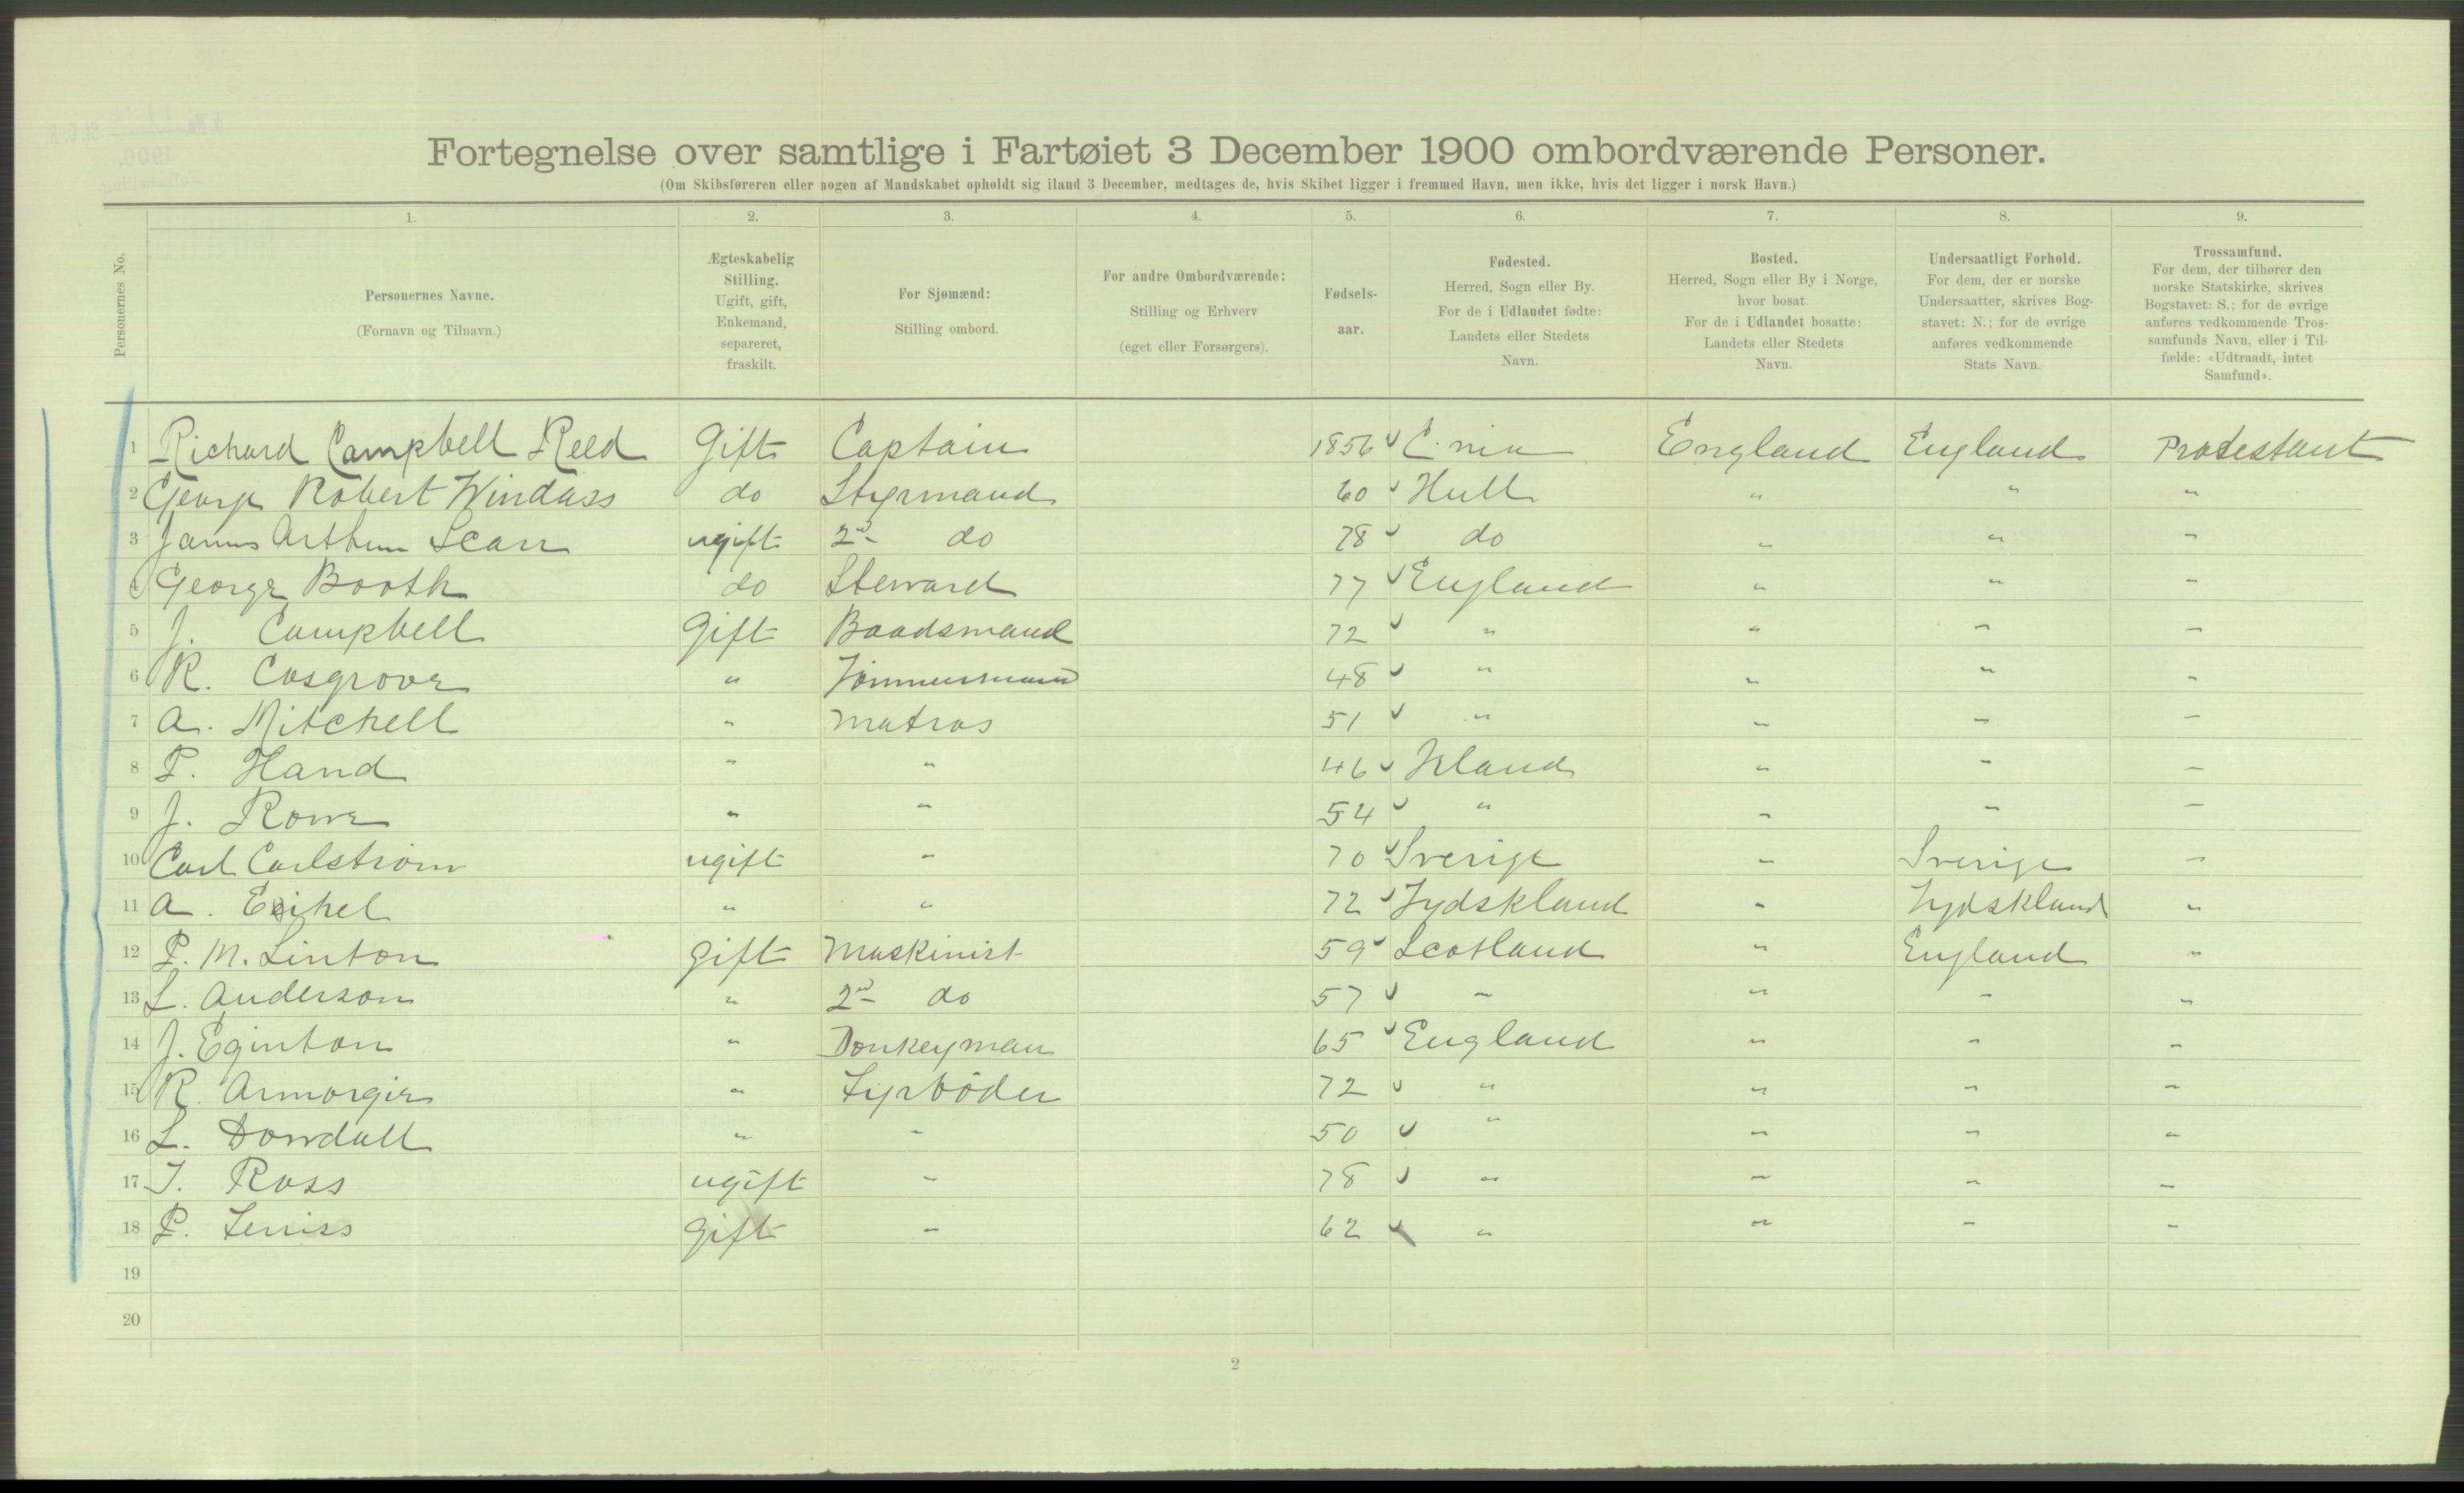 Fortegnelse over samtlige i Fartøiet 3 December 1900 ombordværende Personer.
(Om Skibsføreren eller nogen af Mandskabet opholdt sig iland 3 December, medtages de, hvis Skibet ligger i fremmed Havn, men ikke, hvis det ligger i norsk Havn.)
1. 2. 3. 4. 5. 6. 7. 8. 9.
Personernes No.
Personernes Navne.
(Fornavn og Tilnavn.)
Ægteskabelig
Stilling.
Ugift, gift,
Enkemand,
separeret,
fraskilt.
For Sjømænd:
Stilling ombord.
For andre Ombordværende:
Stilling og Erhverv
(eget eller Forsørgers).
Fødsels-
aar.
Fødested.
Herred, Sogn eller By.
For de i Udlandet fødte:
Landets eller Stedets
Navn.
Bosted.
Herred, Sogn eller By i Norge,
hvor bosat.
For de i Udlandet bosatte:
Landets eller Stedets
Navn.
Undersaatligt Forhold.
For dem, der er norske
Undersaatter, skrives Bog-
stavet: N.; for de øvrige
anføres vedkommende
Stats Navn.
Trossamfund.
For dem, der tilhører den
norske Statskirke, skrives
Bogstavet: S.; for de øvrige
anføres vedkommende Tros-
samfunds Navn, eller i Til-
fælde: «Udtraadt, intet
Samfund».
1 Richard Campbell Reed Gift Captain 1856 C.nia England England Protestant
2 George Robert Windass do Styrmand 60 Hull " " "
3 James Arthur Scarr ugift 2nd do 78 do " " "
4 George Booth do Steward 77 England " " "
5 J. Campbell Gift Baadsmand 72 " " " "
6 R. Cosgrove " Tömmermand 48 " " " "
7 A. Mitchell " Matros 51 " " " "
8 P. Hand " " 46 Irland " " "
9 J. Rowe " " 54 " " " "
10 Carl Carlström ugift " 70 Sverige " Sverige "
11 A. Eikel " " 72 Tydskland " Tydskland "
12 P. M. Linton gift Maskinist 59 Scotland " England "
13 L. Anderson " 2nd do 57 " " " "
14 J. Eginton " Donkeyman 65 England " " "
15 R. " Fyrböder 72 " " " "
16 L. Dowdall " " 50 " " " "
17 T. Ross ugift " 78 " " " "
18 P. gift " 62 " " " "
19
20
2